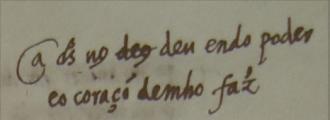 a ds no deo deu endo poder
eo coraçó demho faz